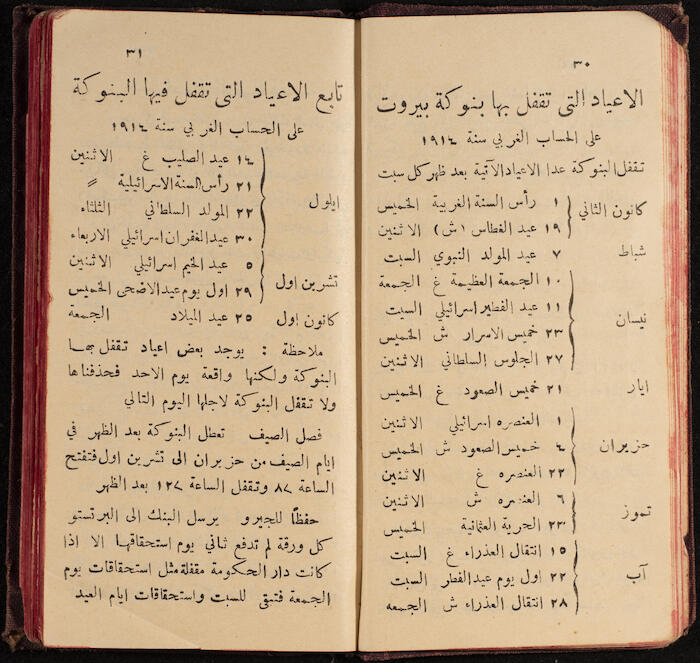 ٣٠
الاعياد التى تقفل بها بنوكة بيروت
على الحساب الغربي سنة ١٩١٤
تقفل البنوكة عدا الاعياد الآتية بعد ظهر كل سبت
كانون الثاني
١ رأس السنة الغربية الخميس
١٩ عيد الغطاس (ش) الاثنين
شباط ٧ عيد المولد النبوي السبت
نيسان
١٠ الجمعة العظيمة غ الجمعة
١١ عيد الفطير اسرائيلي السبت
٢٣ خميس الاسرار ش الخميس
٢٧ الجلوس السلطاني الاثنين
ايار ٢١ خميس الصعود غ الخميس
حزيران
١ العنصره اسرائيلي الاثنين
٤ خميس الصعود ش الخميس
٢٢ العنصره غ الاثنين
تموز
٦ العنصره ش الاثنين
٢٣ الحرية العثمانية الخميس
آب
١٥ انتقال العذراء غ السبت
٢٢ اول يوم عيد الفطر السبت
٢٨ انتقال العذراء ش الجمعه
٣١
تابع الاعياد التى تقفل فيها البنوكة
على الحساب الغربي سنة ١٩١٤
ايلول
١٤ عيد الصليب غ الاثنين
٢١ رأس السنة الاسرائيلية 〃
٢٢ المولد السلطاني الثلثاء
٣٠ عيد الغفران اسرائيلي الاربعاء
تشرين اول
٥ عيد الخيم اسرائيلي الاثنين
٢٩ اول يوم عيد الاضحى الخميس
كانون اول ٢٥ عيد الميلاد الجمعة
ملاحظة : يوجد بعض اعياد تقفل بها
البنوكة ولكنها واقعة يوم الاحد فحذفناها
ولا تقفل البنوكة لاجلها اليوم التالي
فصل الصيف تعطل البنوكة بعد الظهر في
ايام الصيف من حزيران الى تشرين اول فتفتح
الساعة ٨٧ وتقفل الساعة ١٢٧ بعد الظهر
حفظاً للجيرو يرسل البنك الى البرتستو
كل ورقة لم تدفع ثاني يوم استحقاقها الا اذا
كانت دار الحكومة مقفلة مثل استحقاقات يوم
الجمعة فتبقى للسبت واستحقاقات ايام العيد